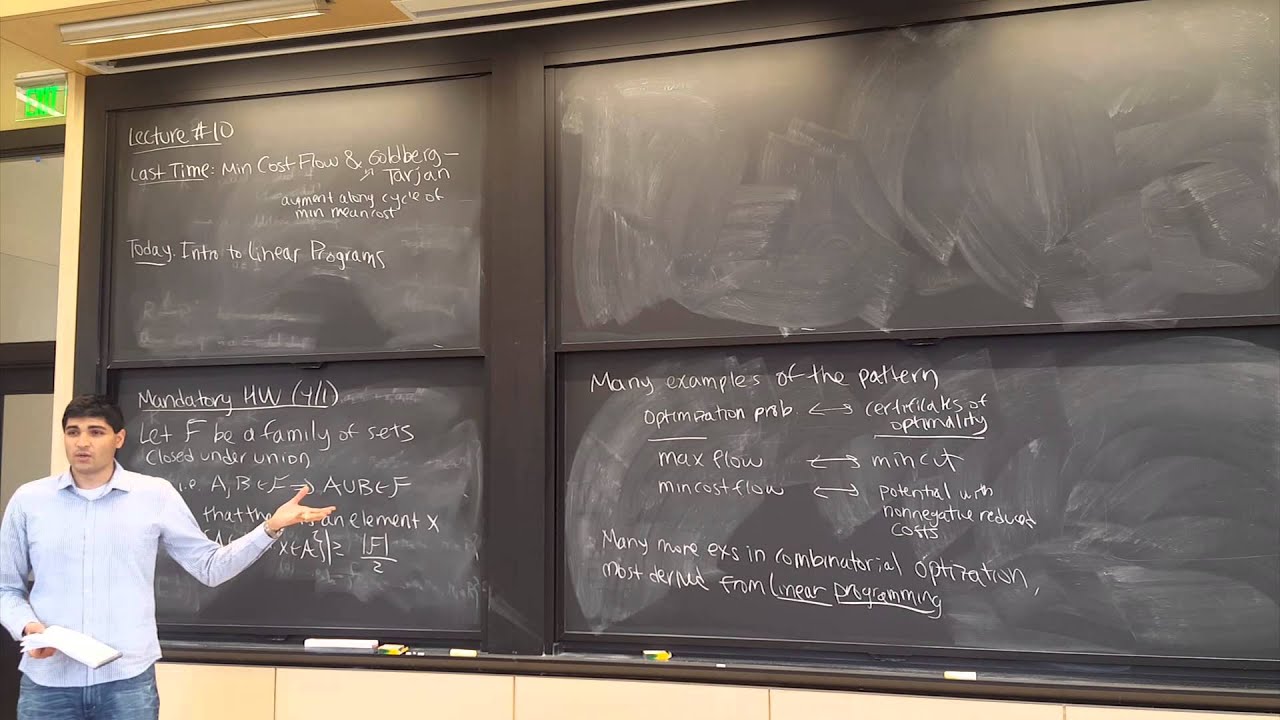 EXIT
Lecture #10
Last Time: Min Cost Flow & Goldberg-
Tarjan
augment along cycle of
min mean cost
Today: Intro to Linear Programs
Mandatory HW (4/1)
Let F be a family of sets
closed under union
i.e. A, B ∈ F → A∪B ∈ F
that is an element x
x∈A}| ≥ |F|/2
Many examples of the pattern
Optimization prob. ↔ certificates of
optimality
max flow ↔ min cut
min cost flow ↔ potential with
nonnegative reduced
costs
Many more exs in combinatorial optimization,
most derived from linear programming